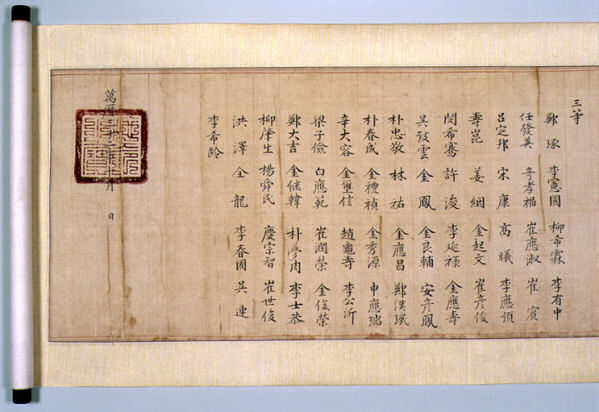 三等
鄭琢 李憲國 柳希霖 李有中
任發英 奇孝福 崔應淑 崔賓
呂定邦 宋康 高曦 李應順
壽崑 姜絪 金起文 崔彥俊
閔希騫 許浚 李延祿 金應壽
吳致雲 金鳳 金良輔 安彥鳳
朴忠敬 林祐 金應昌 鄭漢璣
朴春成 金禮楨 金秀源 申應瑞
辛大容 金璽信 趙龜壽 李公沂
梁子儉 白應範 崔潤榮 金俊榮
鄭大吉 金繼韓 朴夢周 李士恭
柳肇生 楊舜民 慶宗智 崔世俊
洪澤 全龍 李春國 吳連
李希齡
萬曆 月 日